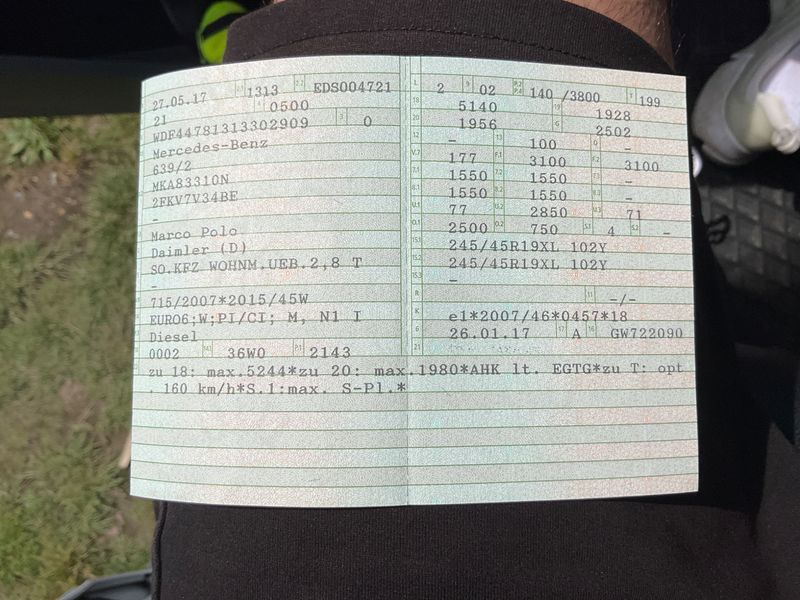 27.05.17 1313 EDS004721
21 0500
WDF44781313302909 3 0
Mercedes-Benz
639/2
MKA83310N
2FKV7V34BE
-
Marco Polo
Daimler (D)
SO.KFZ WOHNM.UEB.2,8 T
-
715/2007*2015/45W
EURO6;W;PI/CI; M, N1 I
Diesel
0002 36W0 P.1 2143
L 2 9 02 P.2 P.4 140 /3800 T 199
18 5140 19 1928
20 1956 G 2502
12 - 13 100 Q -
V.7 177 F.1 3100 F.2 3100
7.1 1550 7.2 1550 7.3 -
8.1 1550 8.2 1550 8.3 -
U.1 77 U.2 2850 U.3 71
O.1 2500 O.2 750 S.1 4 S.2 -
15.1 245/45R19XL 102Y
15.2 245/45R19XL 102Y
15.3 -
R 11 -/-
K e1*2007/46*0457*18
6 26.01.17 17 A 16 GW722090
21
zu 18: max.5244*zu 20: max.1980*AHK lt. EGTG*zu T: opt
. 160 km/h*S.1:max. S-Pl.*